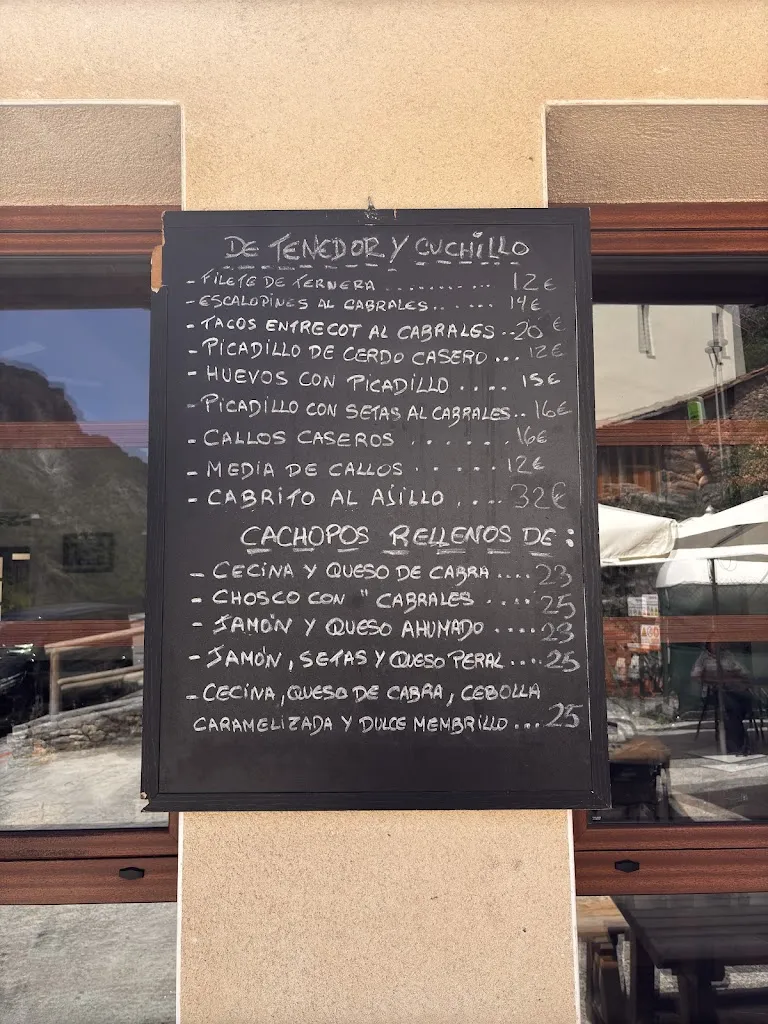 DE TENEDOR Y CUCHILLO
- FILETE DE TERNERA ............ 12€
- ESCALOPINES AL CABRALES....... 14€
- TACOS ENTRECOT AL CABRALES ..20€
- PICADILLO DE CERDO CASERO ... 12€
- HUEVOS CON PICADILLO .... 15€
- PICADILLO CON SETAS AL CABRALES.. 16€
- CALLOS CASEROS ...... 16€
- MEDIA DE CALLOS ...... 12€
- CABRITO AL AJILLO .... 32€
CACHOPOS RELLENOS DE :
- CECINA Y QUESO DE CABRA .... 23
- CHOSCO CON " CABRALES .... 25
- JAMÓN Y QUESO AHUMADO .... 23
- JAMÓN, SETAS Y QUESO PERAL .... 25
- CECINA, QUESO DE CABRA, CEBOLLA
CARAMELIZADA Y DULCE MEMBRILLO ... 25